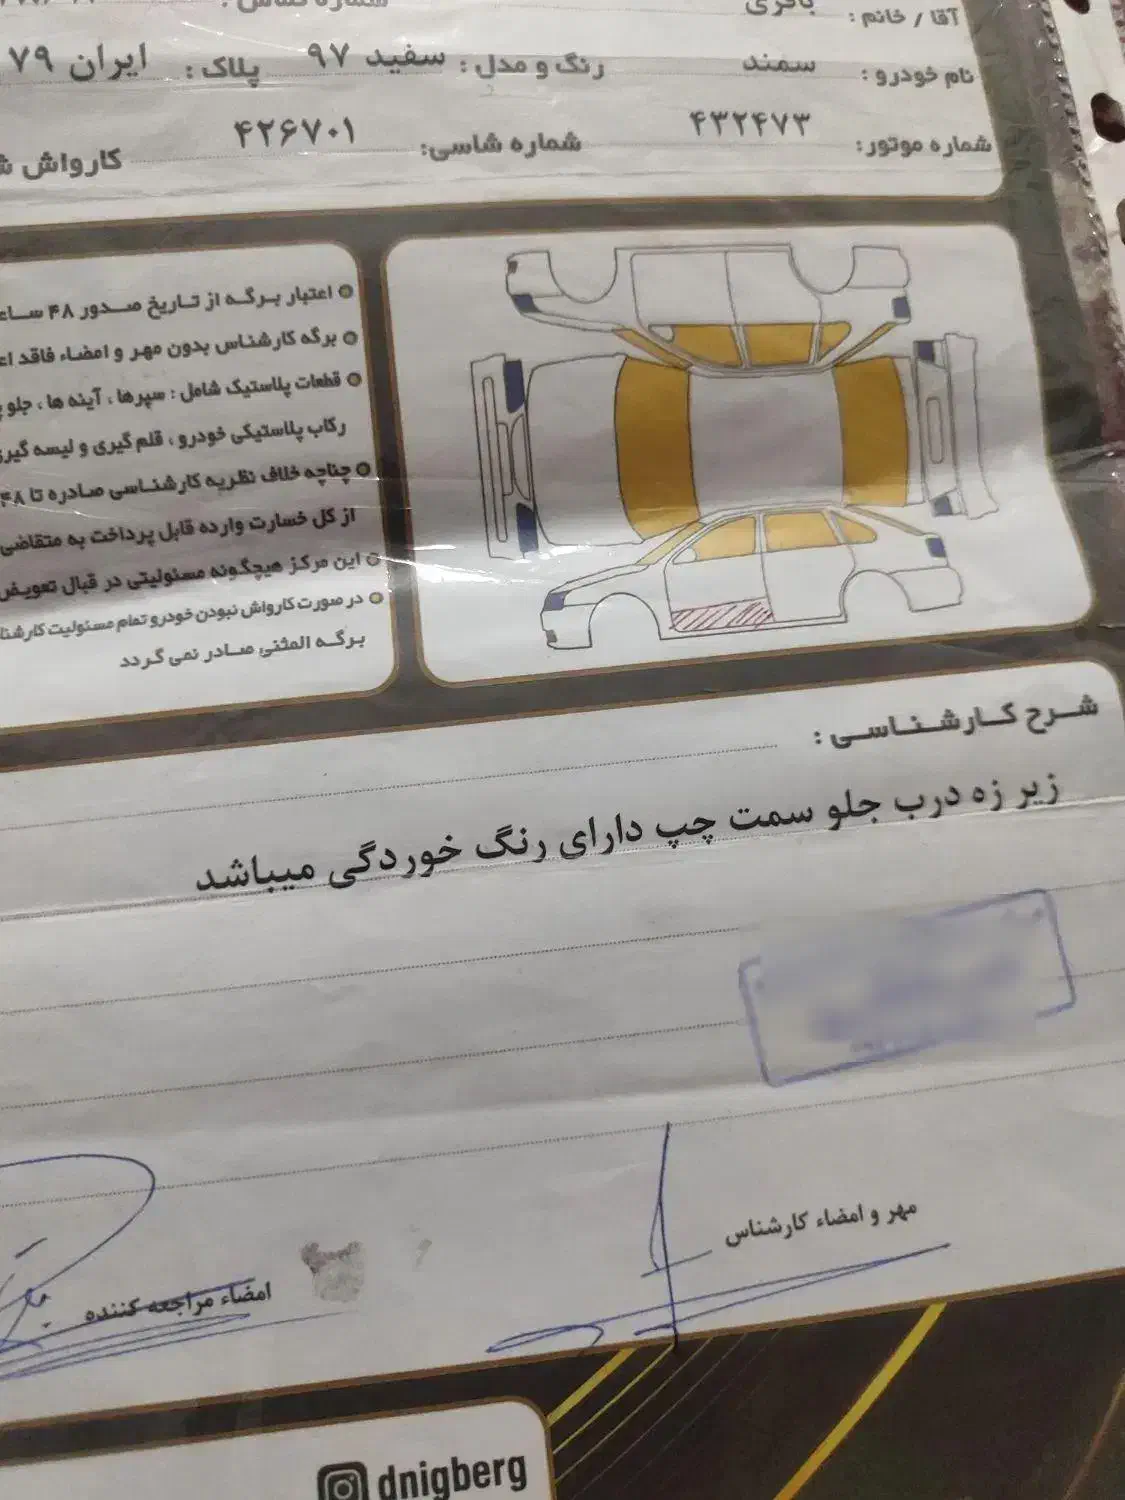 آقا / خانم : باقری
شماره تماس :
نام خودرو : سمند رنگ و مدل : سفید ۹۷ پلاک : ایران ۷۹
شماره موتور: ۴۳۲۴۷۳ شماره شاسی: ۴۲۶۷۰۱ کارواش
اعتبار برگه از تاریخ صدور ۴۸
برگه کارشناس بدون مهر و امضاء فاقد
قطعات پلاستیک شامل : سپرها ، آینه ها ، جلو
رکاب پلاستیکی خودرو ، قلم گیری و لیسه
چناچه خلاف نظریه کارشناسی صادره تا ۴۸
از کل خسارت وارده قابل پرداخت به متقاضی
این مرکز هیچگونه مسئولیتی در قبال تعویض
در صورت کارواش نبودن خودرو تمام مسئولیت
برگه المثنی صادر نمی گردد
شرح کارشناسی :
زیر زه درب جلو سمت چپ دارای رنگ خوردگی میباشد
مهر و امضاء کارشناس
امضاء مراجعه کننده
dnigberg